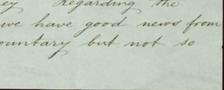 ey Regarding the
we have good news from
ountary but not so